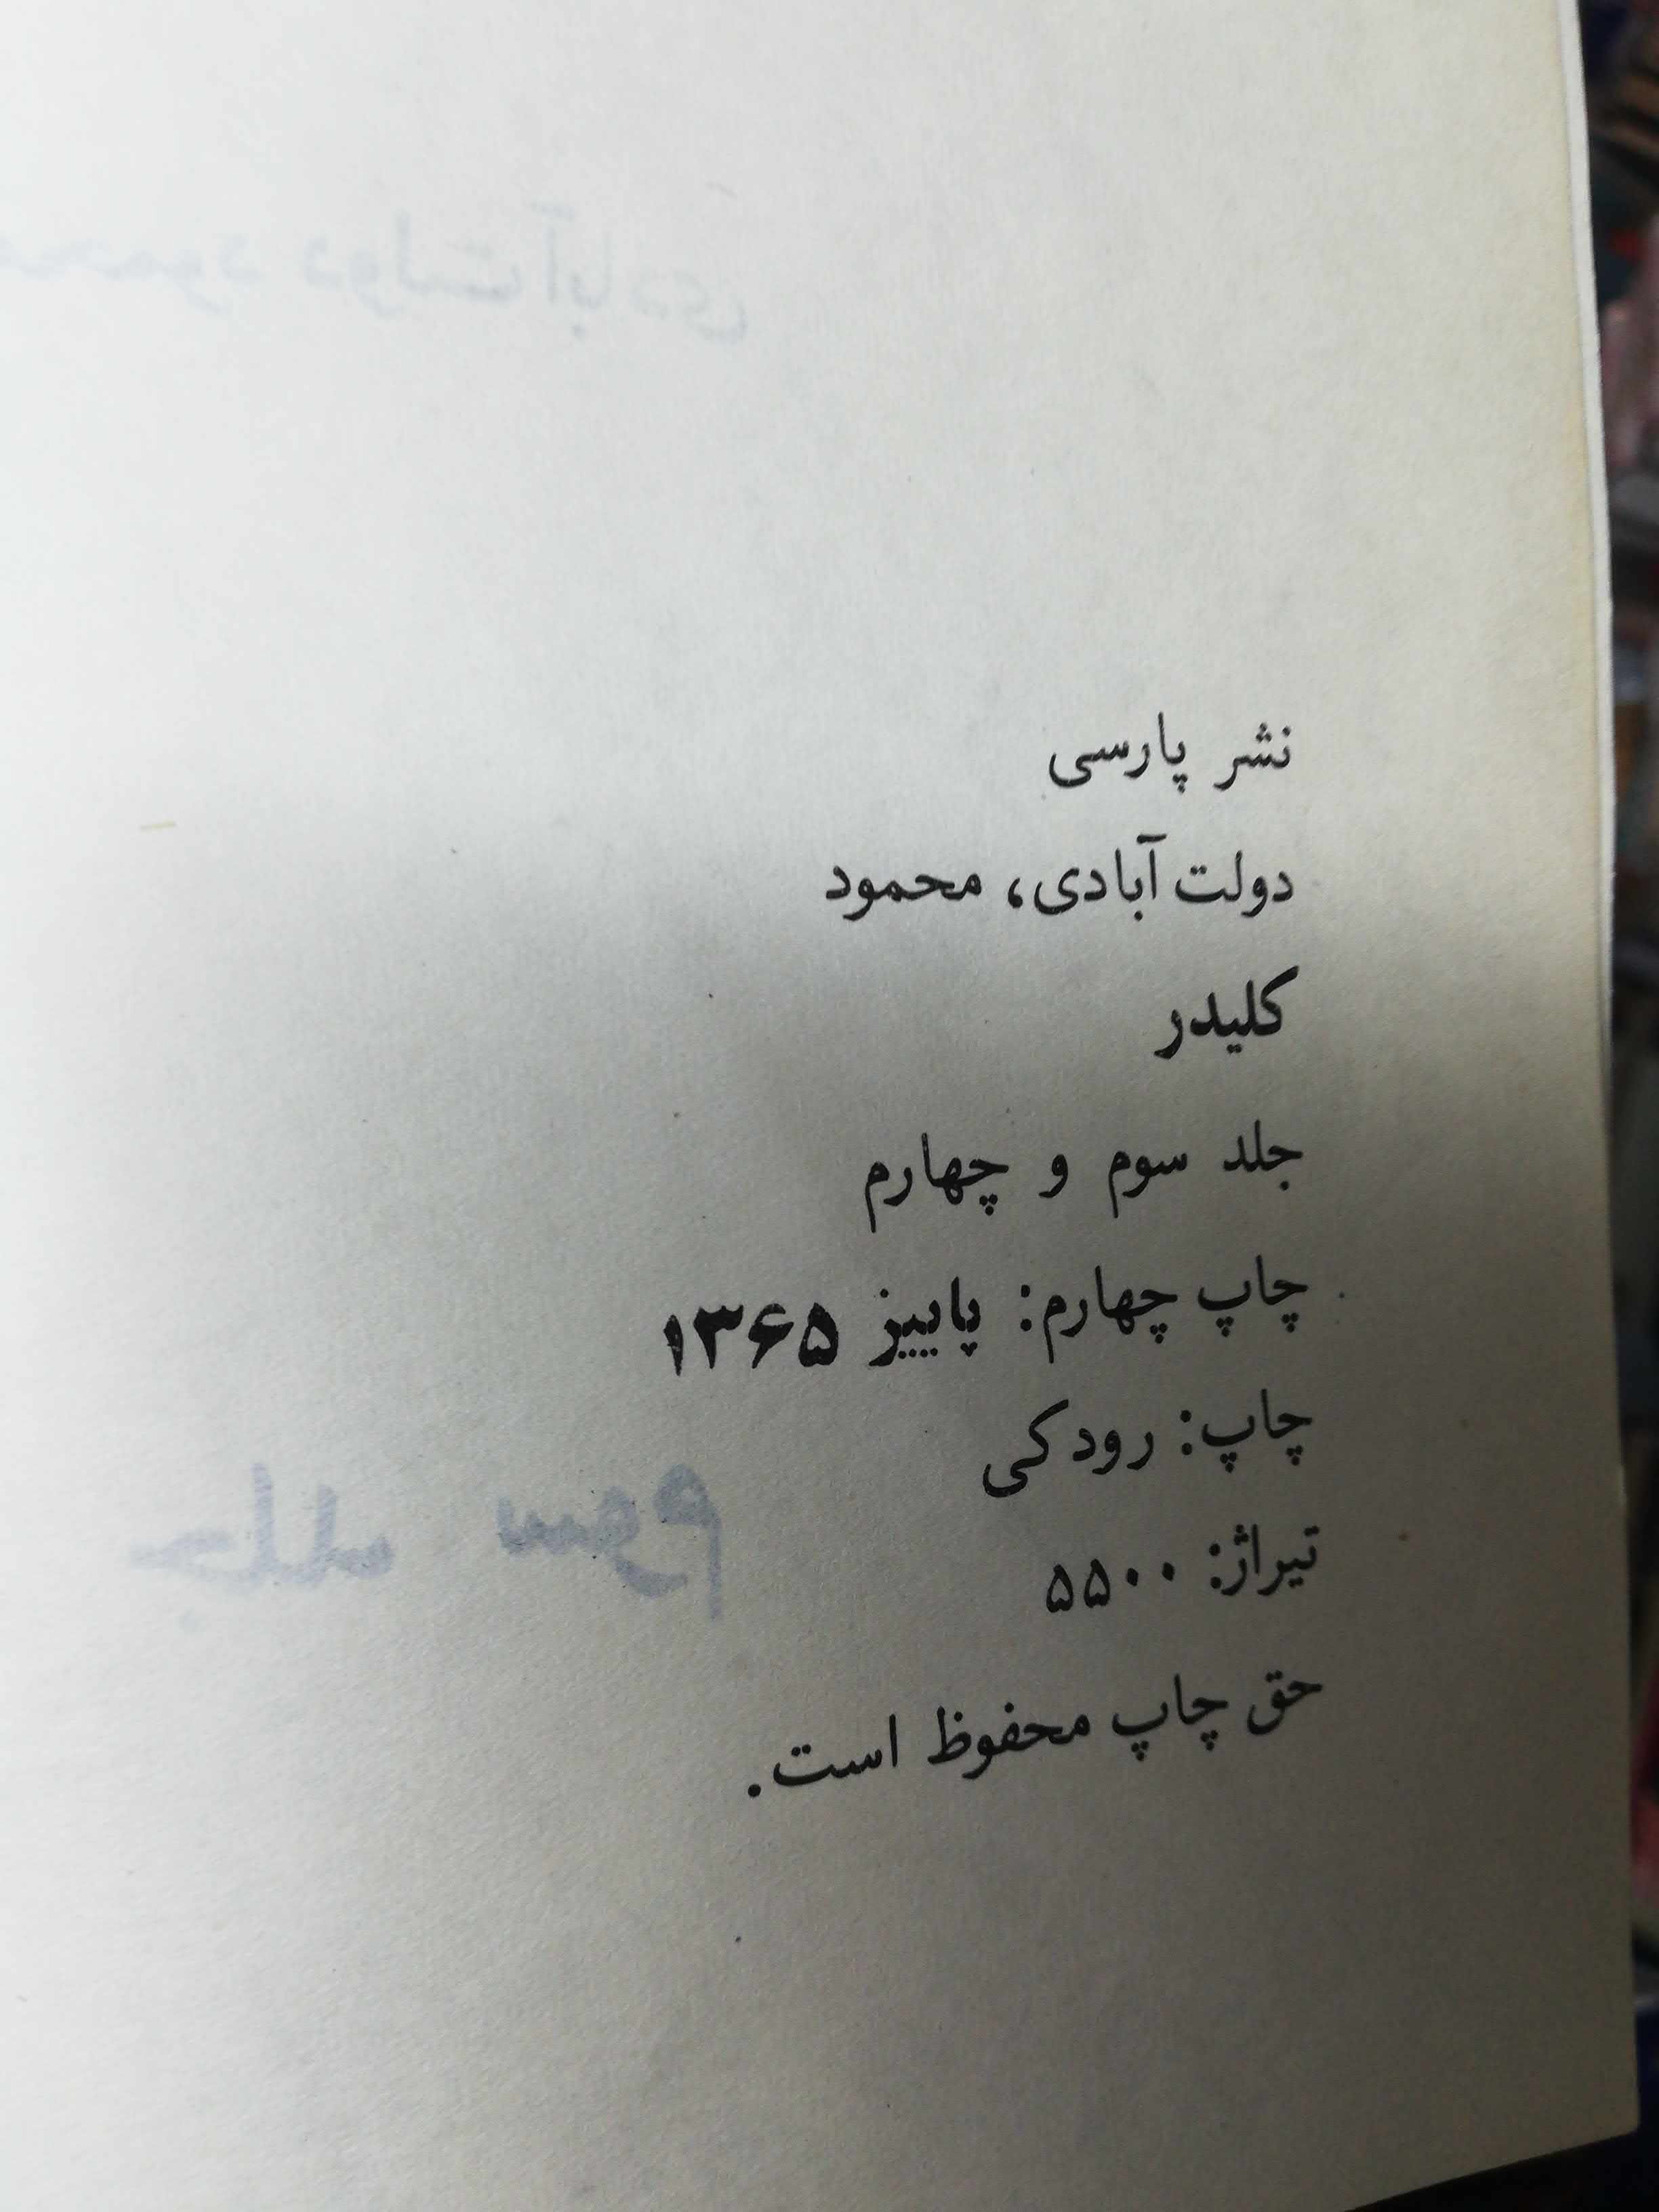 نشر پارسی
دولت آبادی، محمود
کلیدر
جلد سوم و چهارم
چاپ چهارم: پاییز ۱۳۶۵
چاپ: رودکی
تیراژ: ۵۵۰۰
حق چاپ محفوظ است.
محمود دولت آبادی
جلد سوم